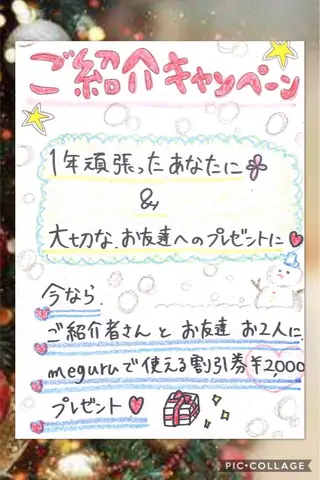 ご紹介キャンペーン
1年頑張ったあなたに
&
大切な、お友達へのプレゼントに
今なら、
ご紹介者さんと お友達 お2人に
meguruで使える割引券¥2,000
プレゼント
PIC•COLLAGE